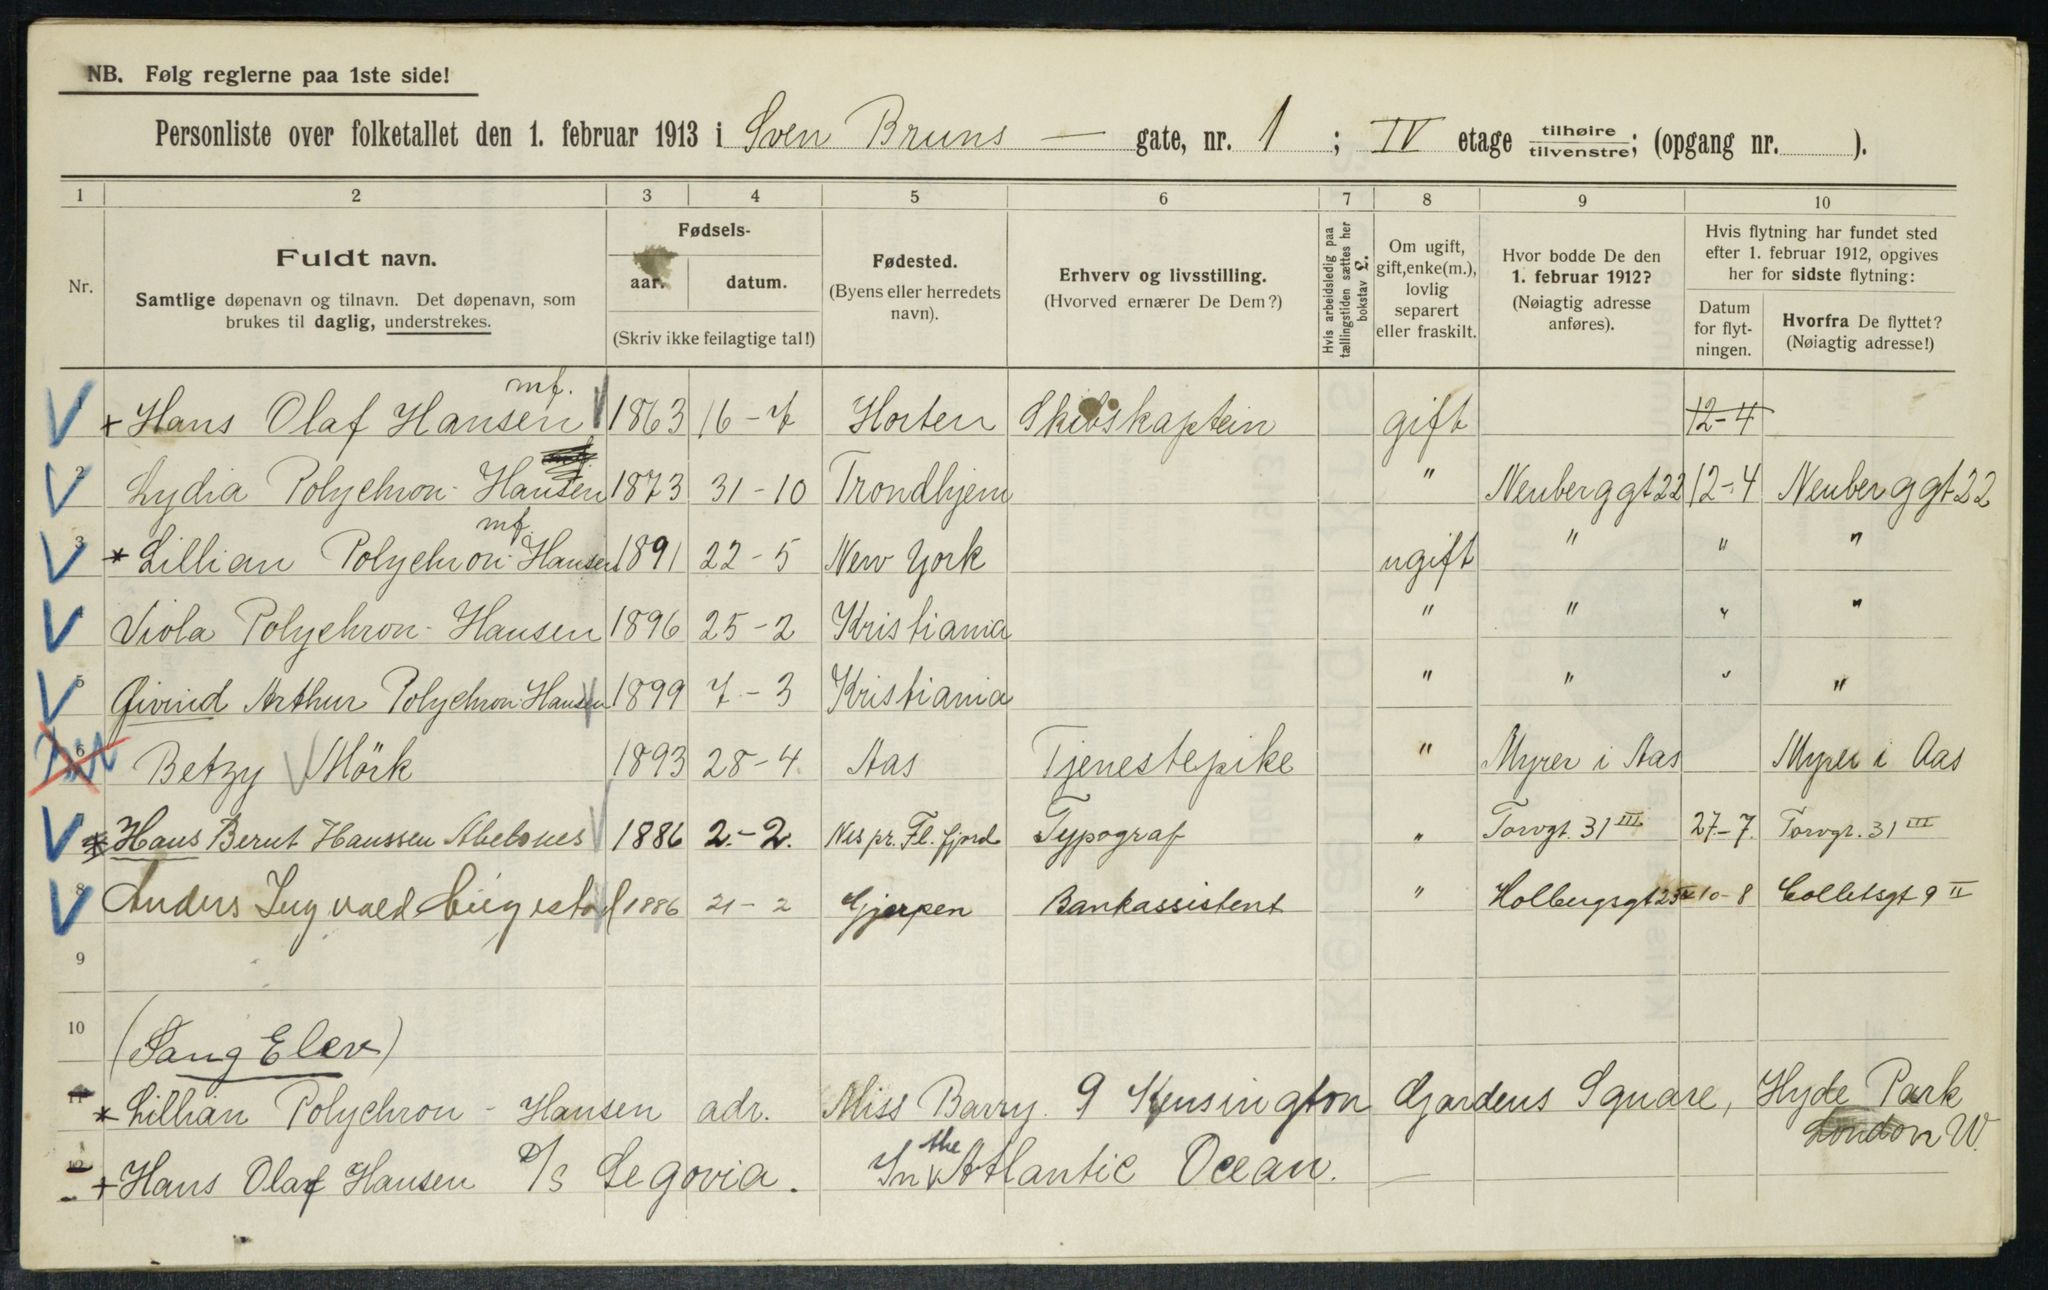 NB. Følg reglerne paa 1ste side!
Personliste over folketallet den 1. februar 1913 i Sven Bruns — gate, nr. 1 ; IV etage tilhøire / tilvenstre; (opgang nr. ).
1 2 3 4 5 6 7 8 9 10
Nr.
Fuldt navn.
Samtlige døpenavn og tilnavn. Det døpenavn, som
brukes til daglig, understrekes.
Fødsels-
aar. datum.
(Skriv ikke feilagtige tal!)
Fødested.
(Byens eller herredets
navn).
Erhverv og livsstilling.
(Hvorved ernærer De Dem?)
Hvis arbeidsledig paa
tællingstiden sættes her
bokstav L.
Om ugift,
gift, enke(m.),
lovlig
separert
eller fraskilt.
Hvor bodde De den
1. februar 1912?
(Nøiagtig adresse
anføres).
Hvis flytning har fundet sted
efter 1. februar 1912, opgives
her for sidste flytning:
Datum
for flyt-
ningen.
Hvorfra De flyttet?
(Nøiagtig adresse!)
mf.
+ Hans Olaf Hansen 1863 16-7 Horten Skibskaptein gift 12-4
2 Lydia Polychron-Hansen 1873 31-10 Trondhjem " Neuberggt 22 12-4 Neuberggt 22
mf.
3 * Lillian Polychron-Hansen 1891 22-5 New York ugift " " "
Viola Polychron-Hansen 1896 25-2 Kristiania " " " "
5 Øivind Arthur Polychron-Hansen 1899 7-3 Kristiania " " " "
6 Betzy Mörk 1893 28-4 Aas Tjenestepike " Myrer i Aas Myrer i Aas
* Hans Bernt Hanssen Abelsnes 1886 2.-2. Nes pr. Fl. fjord Typograf " Torvgt. 31 III 27-7. Torvgt. 31 III
8 Anders Ingvald 1886 21-2 Gjerpen Bankassistent " Holbergsgt 10-8 Colletsgt 9 II
9
10
(Sang Elev)
11 * Lillian Polychron-Hansen adr. Miss Barry. 9 Kensington Gardens Square, Hyde Park
London W.
12 + Hans Olaf Hansen S/S Segovia. In the Atlantic Ocean. —